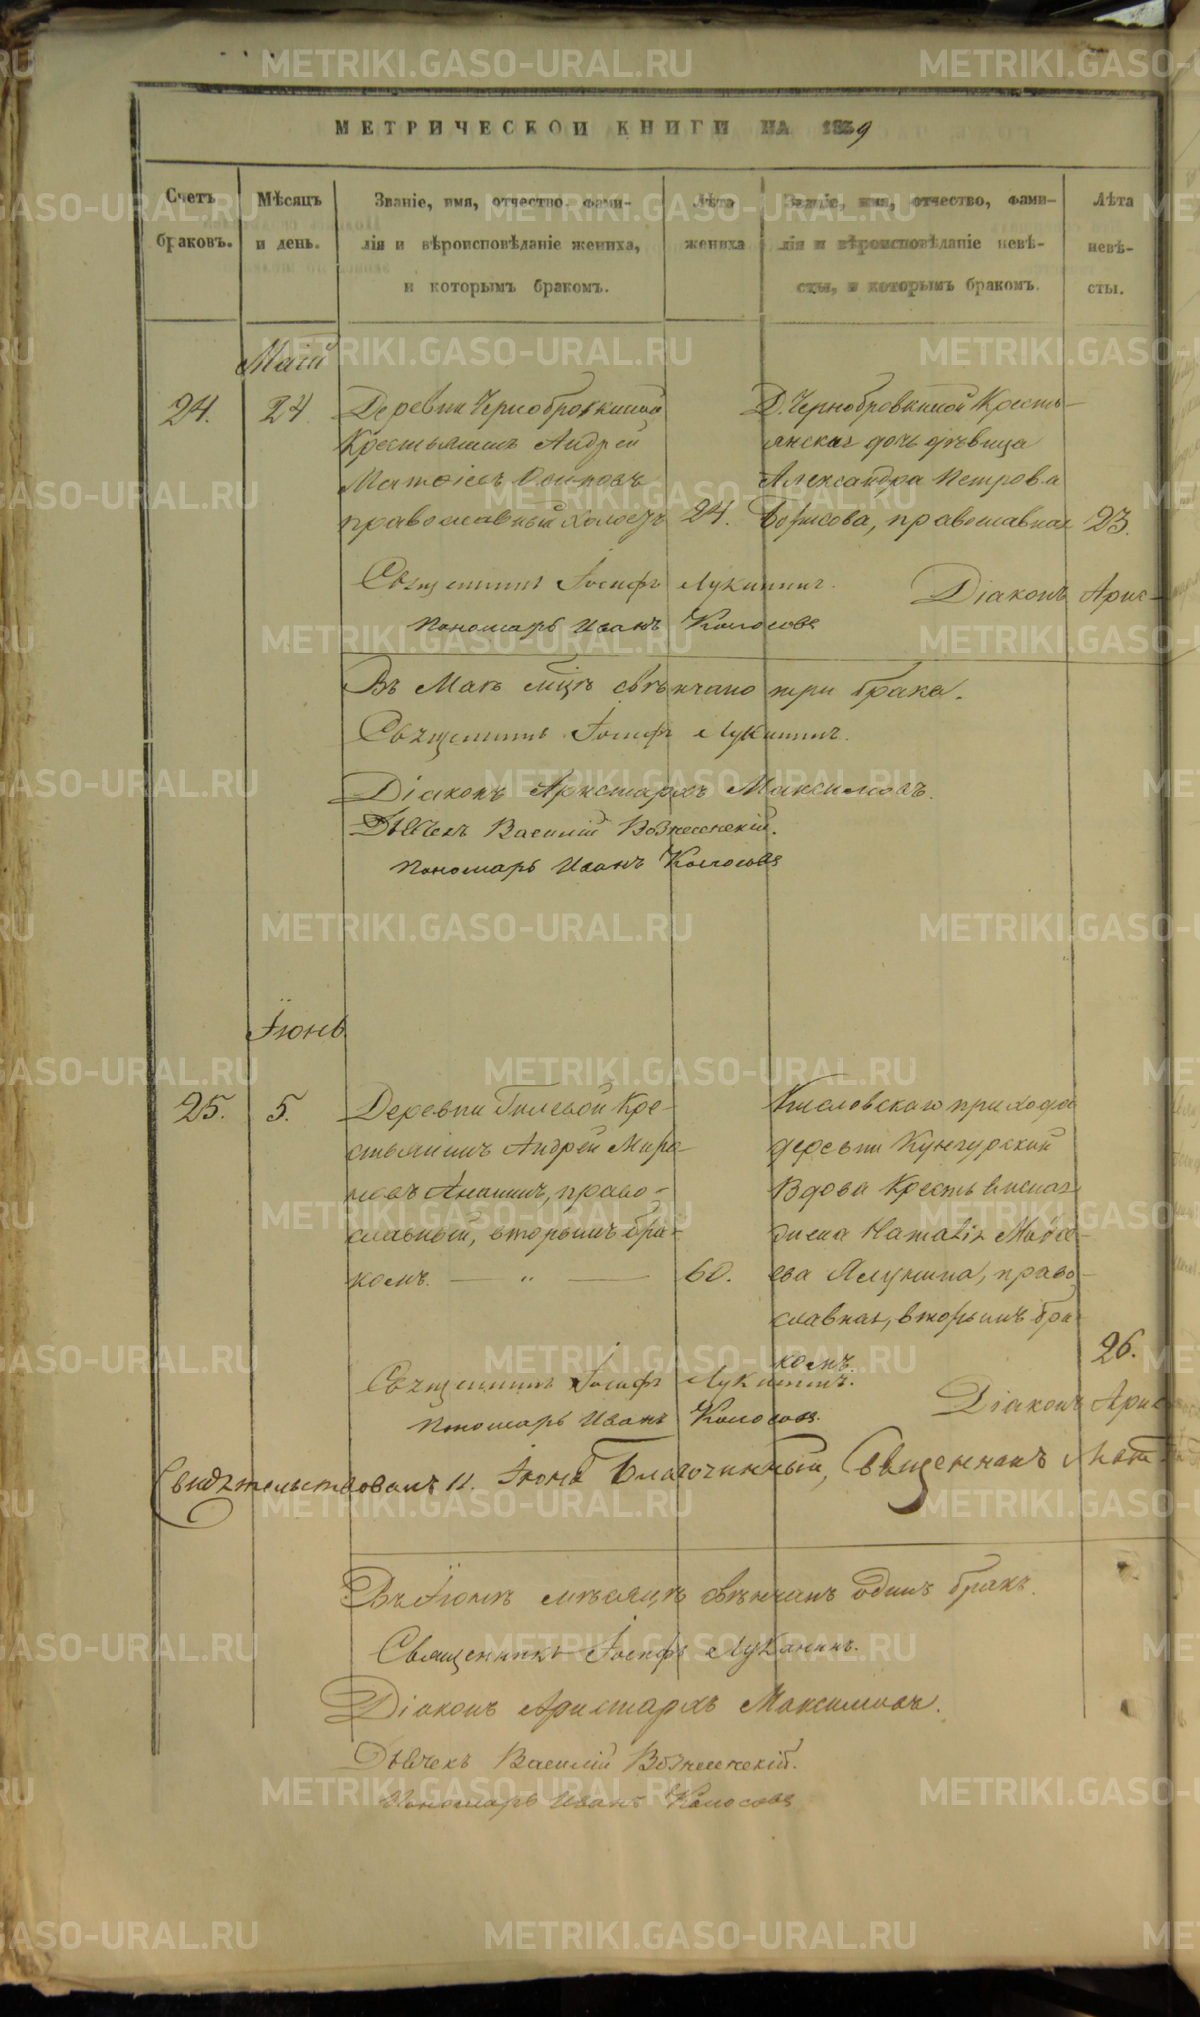 МЕТРИЧЕСКОЙ КНИГИ НА 1839
Счетъ браковъ.
Мѣсяцъ и день.
Званіе, имя, отчество, фами-
лія и вѣроисповѣданіе жениха,
и которымъ бракомъ.
Лѣта жениха
Званіе, имя, отчество, фами-
лія и вѣроисповѣданіе невѣ-
сты, и которымъ бракомъ.
Лѣта невѣ-
сты.
Маій
24. 24. Деревни Чернобровкиной
Крестьянинъ Андрей
Матѳіевъ Осиповъ
православный холостъ 24.
Д. Чернобровкиной Кресть-
янская дочь дѣвица
Александра Петрова
Борисова, православная 23.
Священникъ Іосифъ Луканинъ. Діаконъ Арис-
Пономарь Иванъ Колосовъ
Въ Маѣ м̃цѣ свѣнчано три брака.
Священникъ Іосифъ Луканинъ.
Діаконъ Аристархъ Максимовъ.
Дьячекъ Василій Вознесенскій.
Пономарь Иванъ Колосовъ
Іюнь
25. 5. Деревни Гилевой Кре-
стьянинъ Андрей Миро
новъ Ананьинъ, право-
славный, вторымъ бра-
комъ. — „ — 60.
Кисловскаго прихода
деревни Кунгурской
Вдова Крестьянская
жена Наталія Моѵсе-
ева Ялунина, право-
славная, вторымъ бра-
комъ. 26.
Священникъ Іосифъ Луканинъ. Діаконъ Арис
Пономарь Иванъ Колосовъ.
Свидѣтельствовалъ 11. Іюня Благочинный, Священникъ
Въ Іюнѣ мѣсяцѣ свѣнчанъ одинъ бракъ.
Священникъ Іосифъ Луканинъ.
Діаконъ Аристархъ Максимовъ.
Дьячекъ Василій Вознесенскій.
Пономарь Иванъ Колосовъ
METRIKI.GASO-URAL.RU